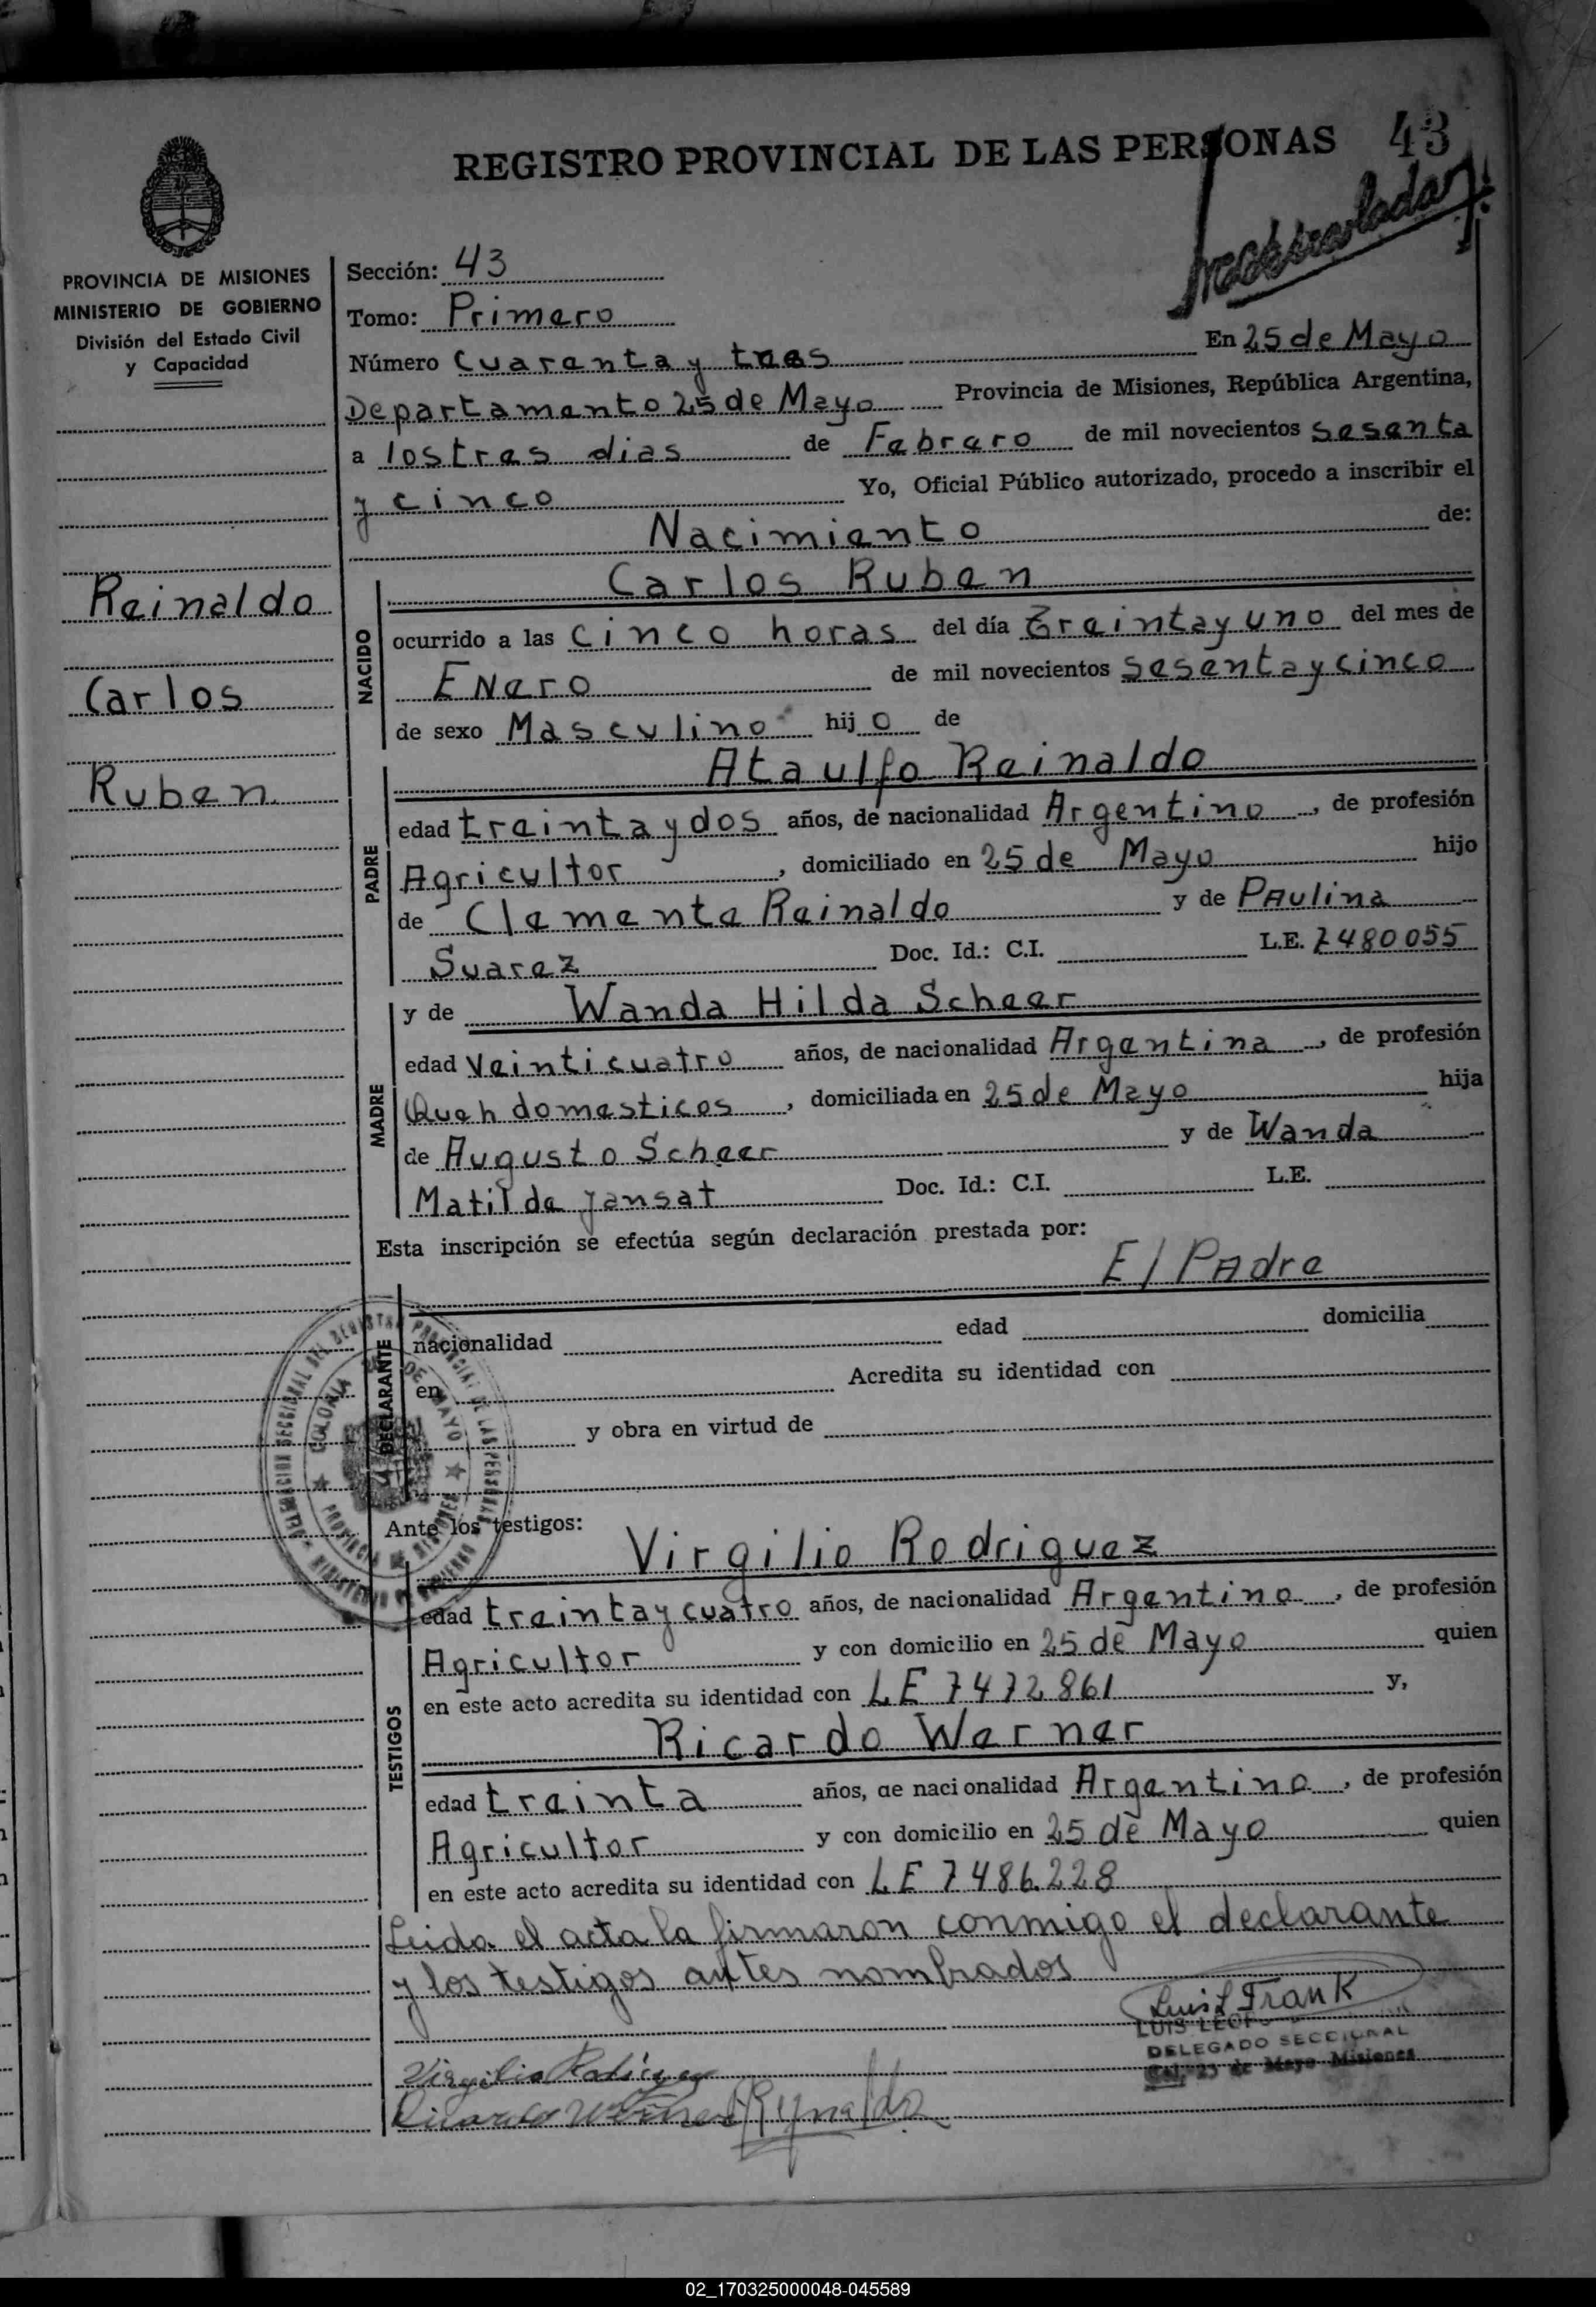 REGISTRO PROVINCIAL DE LAS PERSONAS 43
PROVINCIA DE MISIONES
MINISTERIO DE GOBIERNO
División del Estado Civil
y Capacidad
Reinaldo
Carlos
Ruben
Sección: 43
Tomo: Primero
Número Cuarenta y tres En 25 de Mayo
Departamento 25 de Mayo Provincia de Misiones, República Argentina,
a los tres dias de Febrero de mil novecientos sesenta
y cinco Yo, Oficial Público autorizado, procedo a inscribir el
Nacimiento de:
Carlos Ruben
NACIDO
ocurrido a las cinco horas del día Treinta y uno del mes de
Enero de mil novecientos sesenta y cinco
de sexo Masculino hijo de
Ataulfo Reinaldo
PADRE
edad treinta y dos años, de nacionalidad Argentino, de profesión
Agricultor, domiciliado en 25 de Mayo hijo
de Clemente Reinaldo y de Paulina
Suarez Doc. Id.: C.I. L.E. 7480055
y de Wanda Hilda Scheer
MADRE
edad Veinticuatro años, de nacionalidad Argentina, de profesión
Queh domesticos, domiciliada en 25 de Mayo hija
de Augusto Scheer y de Wanda
Matilde Jansat Doc. Id.: C.I. L.E.
Esta inscripción se efectúa según declaración prestada por:
El Padre
DECLARANTE
nacionalidad edad domicilia
en Acredita su identidad con
y obra en virtud de
COLONIA 25 DE MAYO
PROVINCIA DE MISIONES
Ante los testigos:
Virgilio Rodriguez
TESTIGOS
edad treinta y cuatro años, de nacionalidad Argentino, de profesión
Agricultor y con domicilio en 25 de Mayo quien
en este acto acredita su identidad con LE 7472861 y,
Ricardo Werner
edad treinta años, de nacionalidad Argentino, de profesión
Agricultor y con domicilio en 25 de Mayo quien
en este acto acredita su identidad con LE 7486228
Leida el acta la firmaron conmigo el declarante
y los testigos antes nombrados
Luis L Frank
LUIS
DELEGADO SECCIONAL
Col. 25 de Mayo Misiones
Virgilio Rodriguez
Ricardo Werner Reynaldo
02_170325000048-045589